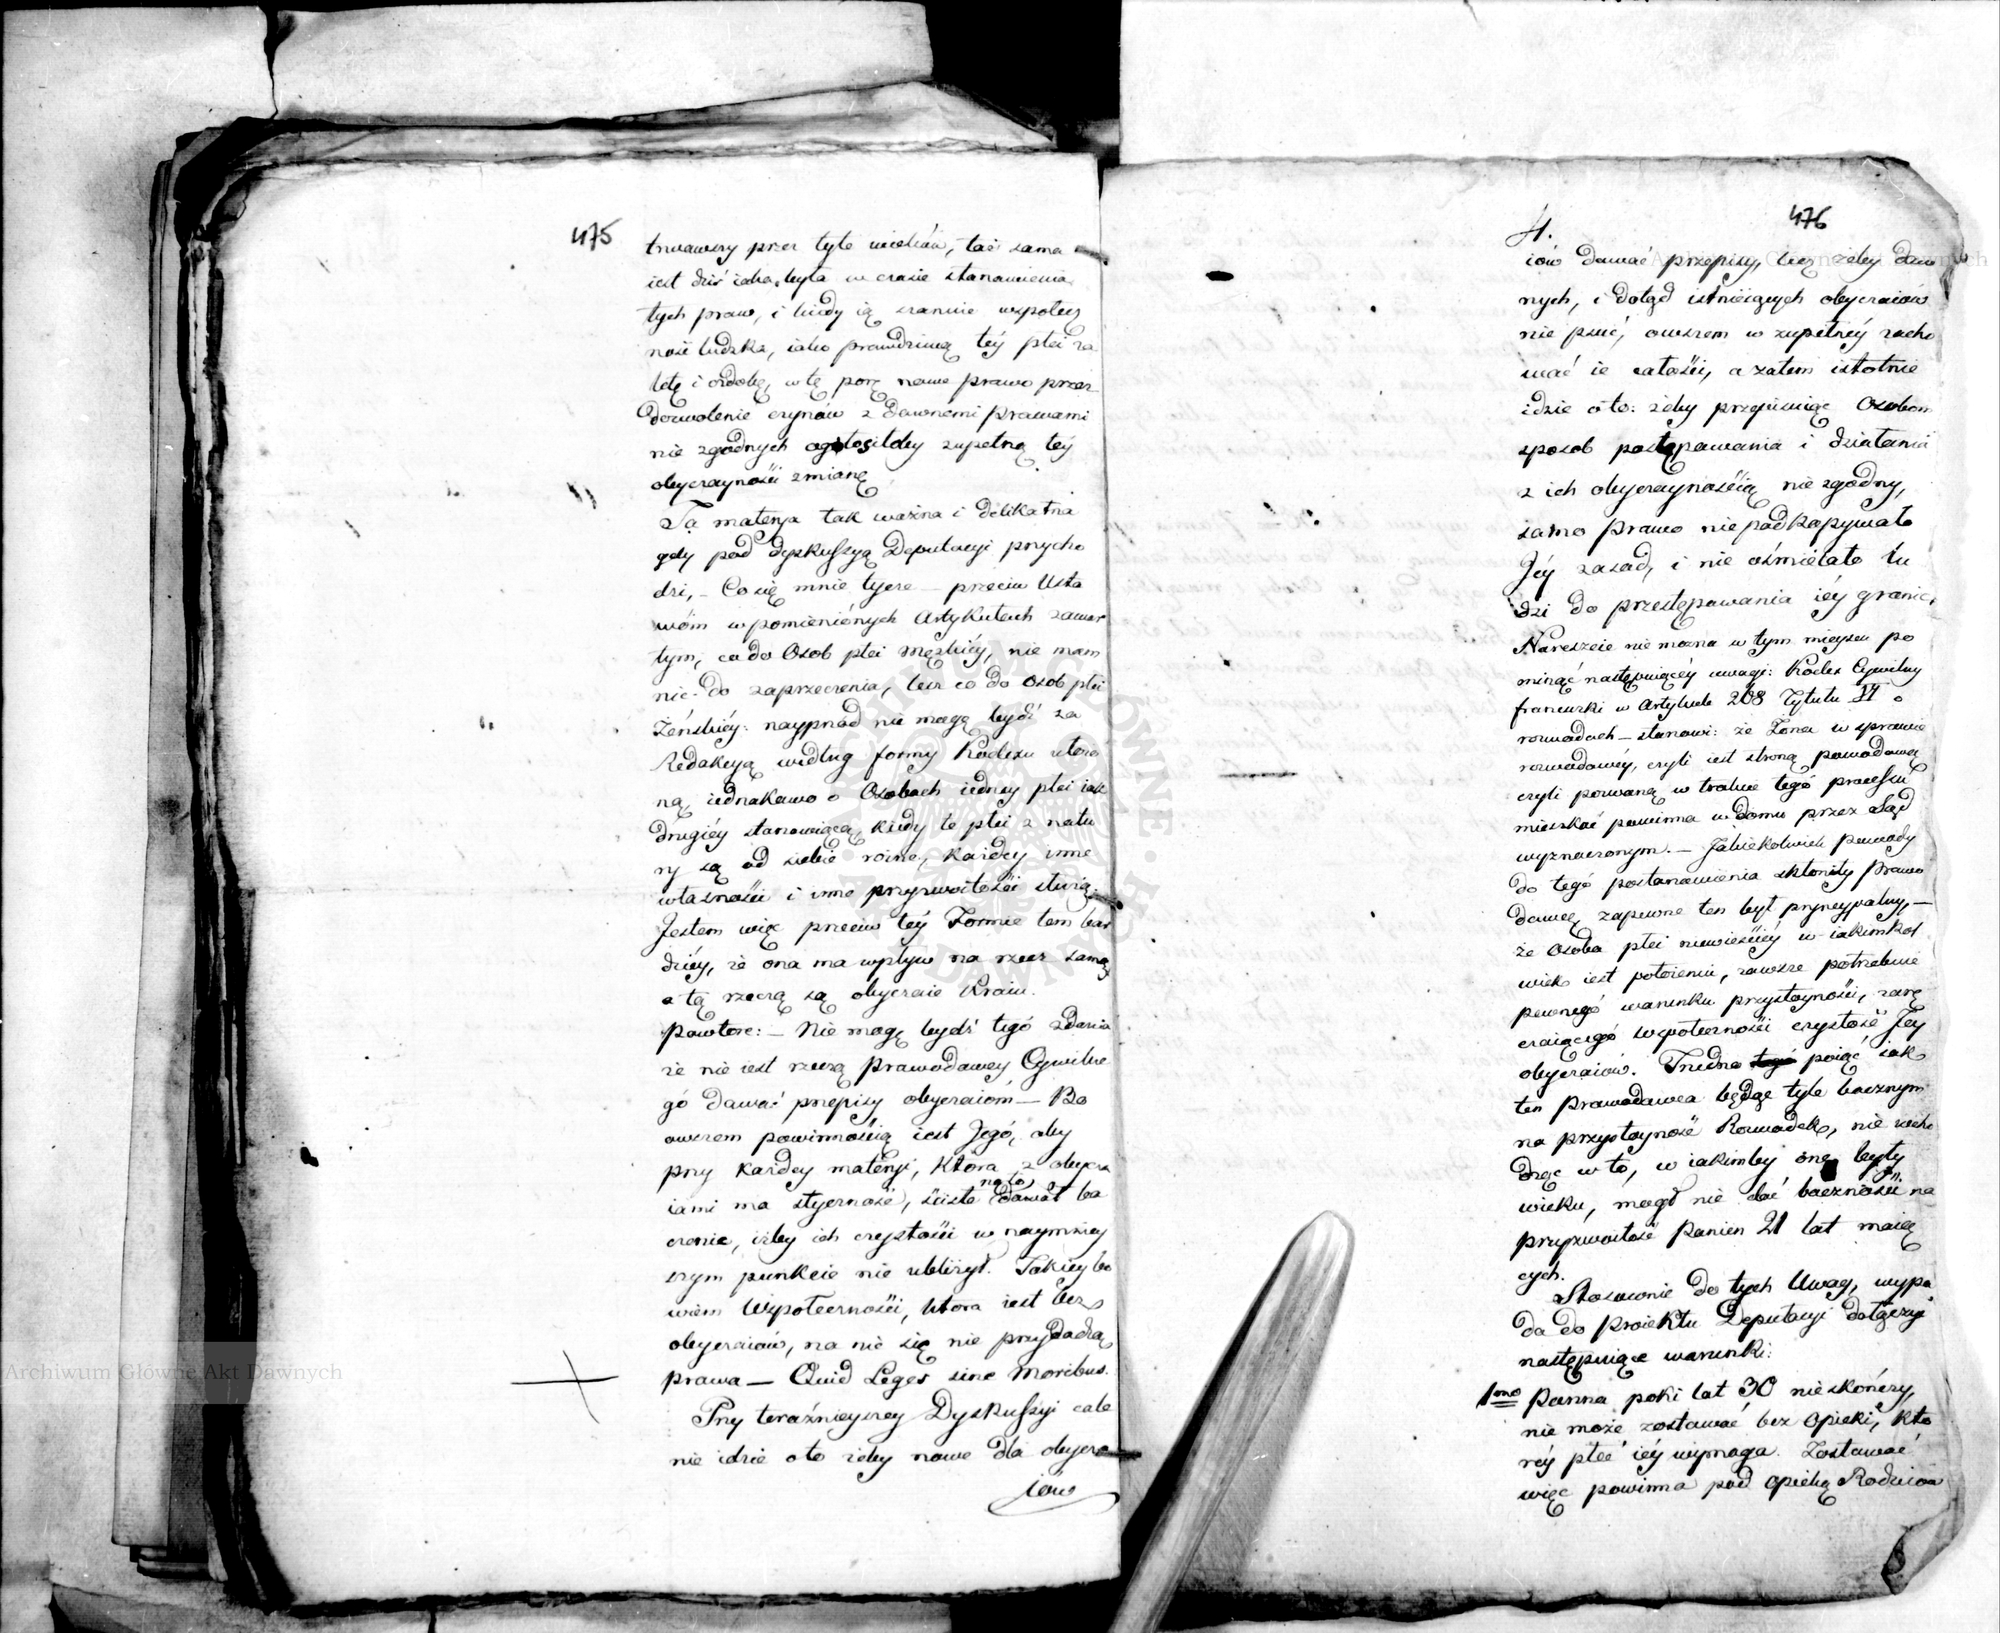 475
trwawszy przez tyle wieków, taż sama
iest dziś iaka była w czasie stanowienia
tych praw, i kiedy ią szanuie współecz
ność ludzka, iako prawdziwą téy płci za
letę i ozdobę, w tę porę nowe prawo przez
dozwolenie czynów z dawnemi prawami
nie zgodnych ogłosiłoby zupełną téy
obyczayności zmianę.
Ta materya tak ważna i delikatna
gdy pod dyskussyą Deputacyi przycho
dzi, – Co się mnie tycze – przeciw Usta
wóm w pomienionych Artykułach zawar
tym, co do Osob płci męzkiéy, nie mam
nic do zaprzeczenia, lecz co do Osob płci
Żeńskiéy: nayprzód nie mogę bydź za
Redakcyą według formy Kodexu ułożo
ną, iednakowo o Osobach iedney płci iak
drugiéy stanowiącą, kiedy te płci z natu
ry są od siebie różne, każdey inne
własności i inne przyzwoitości służą.
Jestem więc przeciw téy Formie tem bar
dziéy, że ona ma wpływ na rzecz samą
a tą rzeczą są obyczaie Kraiu.
Powtóre: – Nie mogę bydź tégo zdania
że nie iest rzeczą Prawodawcy Cywilne
gó dawać przepisy obyczaióm – Bo
owszem powinnością iest Jégó, aby
przy każdey materyi, która z obycza
iami ma styczność, ściśle na to dawał ba
czenie, iżby ich czystości w naymniey
szym punkcie nie ubliżył. Takiey bo
wiem Współeczności, która iest bez
obyczaiów, na nic się nie przydadzą
prawa – Quid Leges sine Moribus.
Przy teraźnieyszey Dyskussyi cale
nie idzie o to żeby nowe dla obycza
iów
4.
476
iów dawać przepisy, lecz żeby daw
nych, i dotąd istnieiących obyczaiów
nie psuć, owszem w zupełnéy zacho
wać ie całości, a zatem istotnie
idzie o to: żeby przepisuiąc Osobom
sposob postępowania i działania
z ich obyczaynością nie zgodny,
samo Prawo nie podkopywało
Jéy zasad, i nie ośmielało lu
dzi do przestępowania iéy granic.
Nareszcie nie można w tym mieyscu po
minąć następuiącéy uwagi: Kodex Cywilny
francuzki w Artykule 268 Tytułu VI o
rozwodach – stanowi: że Żona w sprawie
rozwodowéy, czyli iest stroną powodową
czyli pozwaną w trakcie tegó processu
mieszkać powinna w domu przez Sąd
wyznaczonym. – Jakiekolwiek powody
do tegó postanowienia skłoniły Prawo
dawcę, zapewne ten był pryncypalny, –
że Osoba płci niewieściéy w iakimkol
wiek iest położeniu, zawsze potrzebuie
pewnegó warunku przystoyności, zarę
czaiącegó współeczności czystość Jey
obyczaiów. Trudno poiąć iak
ten Prawodawca będąc tyle bacznym
na przystoyność Rozwodek, nie wcho
dząc w to, w iakimby one były
wieku, mógł nie dać baczności na
przyzwoitość Panien 21 lat maią
cych.
Stosownie do tych Uwag, wypa
da do Proiektu Deputacyi dołączyć
następuiące warunki:
1mo Panna poki lat 30 nie skończy,
nie może zostawać bez Opieki, któ
réy płeć iéy wymaga. Zostawać
więc powinna pod opieką Rodziców
Archiwum Główne Akt Dawnych